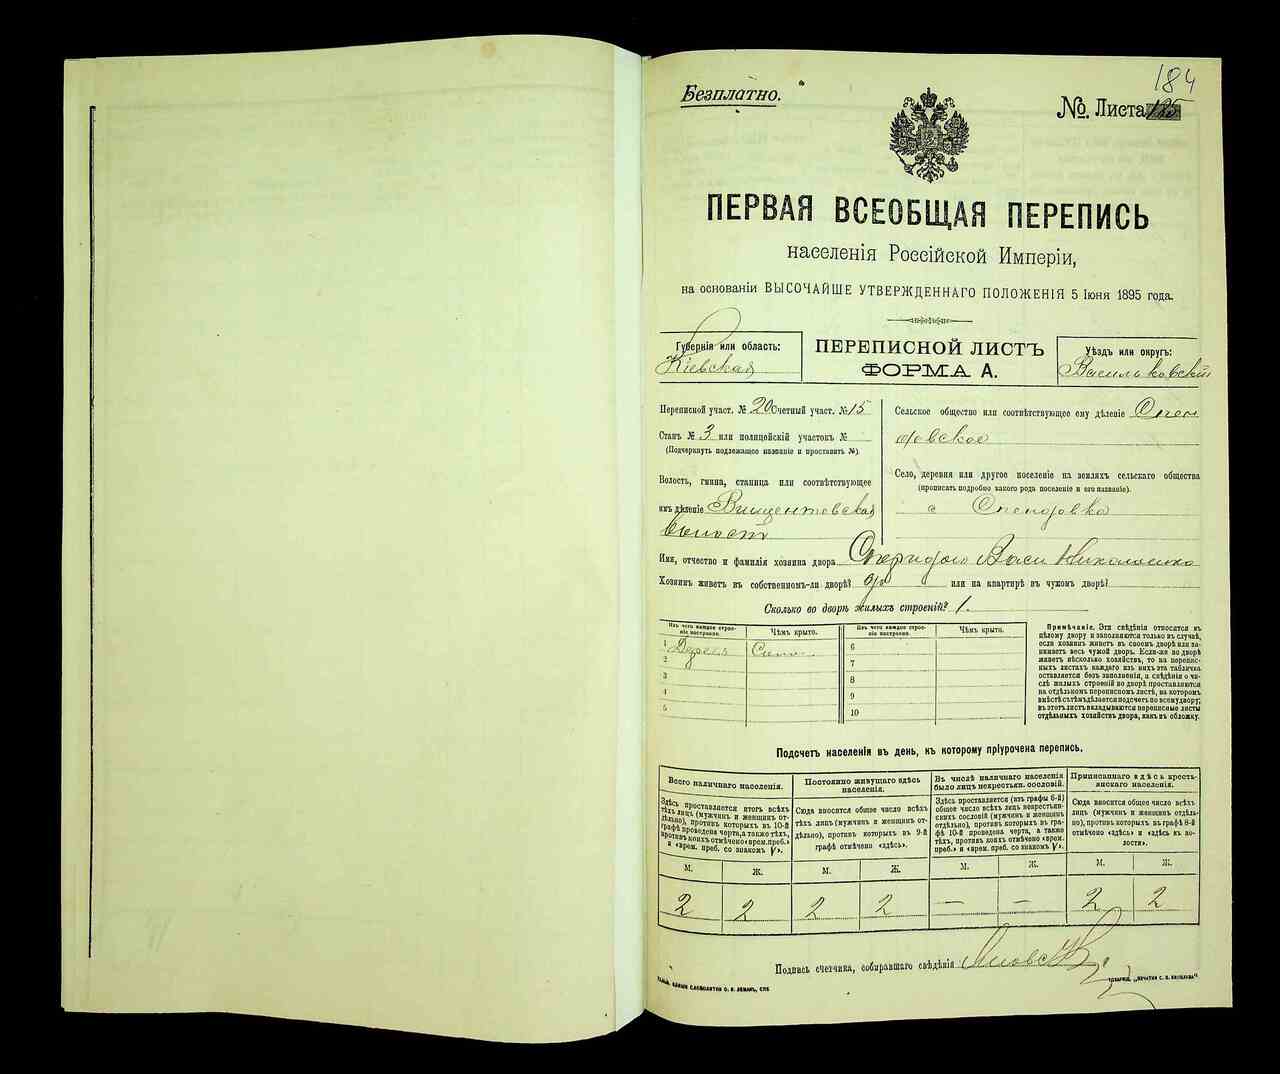 184
Безплатно.
№. Листа
ПЕРВАЯ ВСЕОБЩАЯ ПЕРЕПИСЬ
населенія Россійской Имперіи,
на основаніи ВЫСОЧАЙШЕ УТВЕРЖДЕННАГО ПОЛОЖЕНІЯ 5 Іюня 1895 года.
Губернія или область:
Кіевская
ПЕРЕПИСНОЙ ЛИСТЪ
ФОРМА А.
Уѣздъ или округъ:
Васильковскій
Переписной участ. № 20 Счетный участ. № 15
Станъ № 3 или полицейскій участокъ №
(Подчеркнуть подлежащее названіе и проставить №).
Волость, гмина, станица или соотвѣтствующее
имъ дѣленіе Винцентовская
волость
Сельское общество или соотвѣтствующее ему дѣленіе
Село, деревня или другое поселеніе на земляхъ сельскаго общества
(прописать подробно какого рода поселеніе и его названіе).
с
Имя, отчество и фамилія хозяина двора Спиридонъ Васи Николаенко
Хозяинъ живетъ въ собственномъ-ли дворѣ? да или на квартирѣ въ чужомъ дворѣ?
Сколько во дворѣ жилыхъ строеній? 1.
Изъ чего каждое строеніе построено. Чѣмъ крыто. Изъ чего каждое строеніе построено. Чѣмъ крыто.
1 Дерев Солом 6
2 7
3 8
4 9
5 10
Примѣчаніе. Эти свѣдѣнія относятся къ
цѣлому двору и заполняются только въ случаѣ,
если хозяинъ живетъ въ своемъ дворѣ или занимаетъ
весь чужой дворъ. Если-же во дворѣ
живетъ нѣсколько хозяйствъ, то на переписныхъ
листахъ каждаго изъ нихъ эта табличка
оставляется безъ заполненія, а свѣдѣнія о числѣ
жилыхъ строеній во дворѣ проставляются
на отдѣльномъ переписномъ листѣ, на которомъ
вмѣстѣ съ тѣмъ дѣлается подсчетъ по всему двору;
въ этотъ листъ вкладываются переписные листы
отдѣльныхъ хозяйствъ двора, какъ въ обложку.
Подсчетъ населенія въ день, къ которому пріурочена перепись.
Всего наличнаго населенія.
Здѣсь проставляется итогъ всѣхъ
тѣхъ лицъ (мужчинъ и женщинъ отдѣльно),
противъ которыхъ въ 10-й
графѣ проведена черта, а также тѣхъ,
противъ коихъ отмѣчено «врем. преб.»
и «врем. преб. со знакомъ V».
Постоянно живущаго здѣсь населенія.
Сюда вносится общее число всѣхъ
тѣхъ лицъ (мужчинъ и женщинъ отдѣльно),
противъ которыхъ въ 9-й
графѣ отмѣчено «здѣсь».
Въ числѣ наличнаго населенія
было лицъ некрестьян. сословій.
Здѣсь проставляется (изъ графы 6-й)
общее число всѣхъ лицъ некрестьянскихъ
сословій (мужчинъ и женщинъ
отдѣльно), противъ которыхъ въ графѣ
10-й проведена черта, а также
тѣхъ, противъ коихъ отмѣчено «врем.
преб.» и «врем. преб. со знакомъ V».
Приписаннаго здѣсь крестьянскаго населенія.
Сюда вносится общее число всѣхъ
лицъ (мужчинъ и женщинъ отдѣльно),
противъ которыхъ въ графѣ 8-й
отмѣчено «здѣсь» и «здѣсь къ волости».
М. Ж. М. Ж. М. Ж. М. Ж.
2 2 2 2 — — 2 2
Подпись счетчика, собиравшаго свѣдѣнія